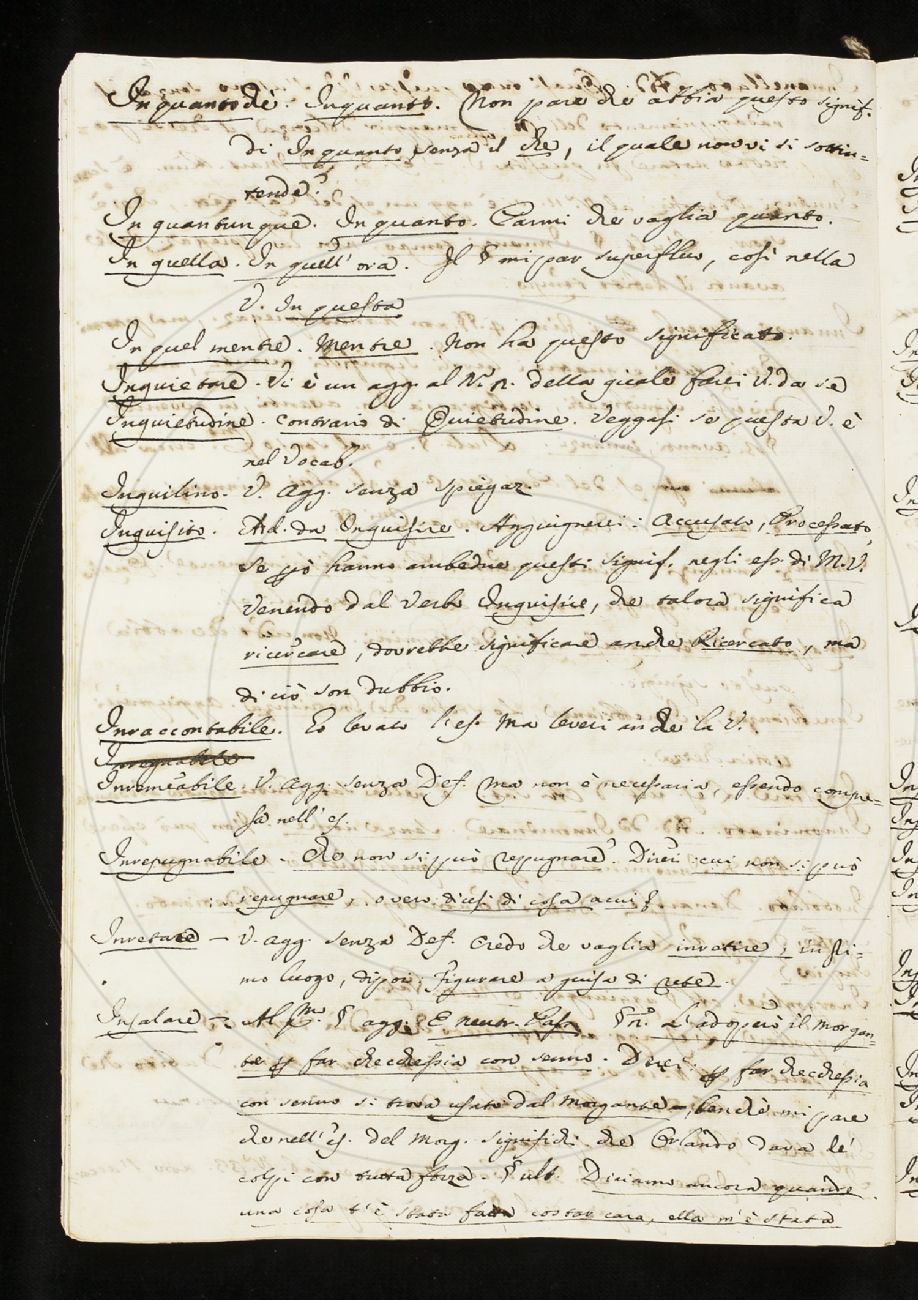 Inquantoché. Inquanto. Non pare che abbia questo signif.
di Inquanto senza il che, il quale non vi si sottin-
tende.
Inquantunque. In quanto. Parmi che vaglia quanto.
In quella. In quell' ora. Il § mi par superfluo, così nella
V. In questa
In quel mentre. Mentre. Non ha questo significato.
Inquietare. Vi è un agg. al N. p. della quale farei V. da se
Inquietudine. contrario di Quietudine. Veggasi se questa V. è
nel Vocab.
Inquilino. V. Agg. senza spiegaz
Inquisito. Ad. da Inquisire. Aggiugnerei: Accusato, Processato,
se però hanno ambedue questi signif. negli es. di M.V.
Venendo dal verbo Inquisire, che talora significa
ricercare, dovrebbe significare anche Ricercato, ma
di ciò son dubbio.
Inraccontabile. Ho levato l'es. Ma leverei anche la V.
Inremeabile. V. Agg. senza Def. ma non è necessaria, essendo compre-
sa nell'es.
Inrepugnabile. Che non si può repugnare. Direi: cui non si può
repugnare, ovvero: dicesi di cosa a cui
Inretare - V. agg. senza Def. Credo che vaglia inretire, in pri-
mo luogo, di poi: Figurare a guisa di rete.
Insalare - Al § agg. E neutr. Pass. L'adoperò il Morgan-
te per far checchessia con senno. Direi: per far checchessia
con senno si trova usato dal Morgante, benchè mi pare
che nell'es. del Morg. significhi che Orlando dava le
colpi con tutta forza. § ult. Diciamo ancora quando
una cosa t'è stata fatta costar cara, ella m'è stata